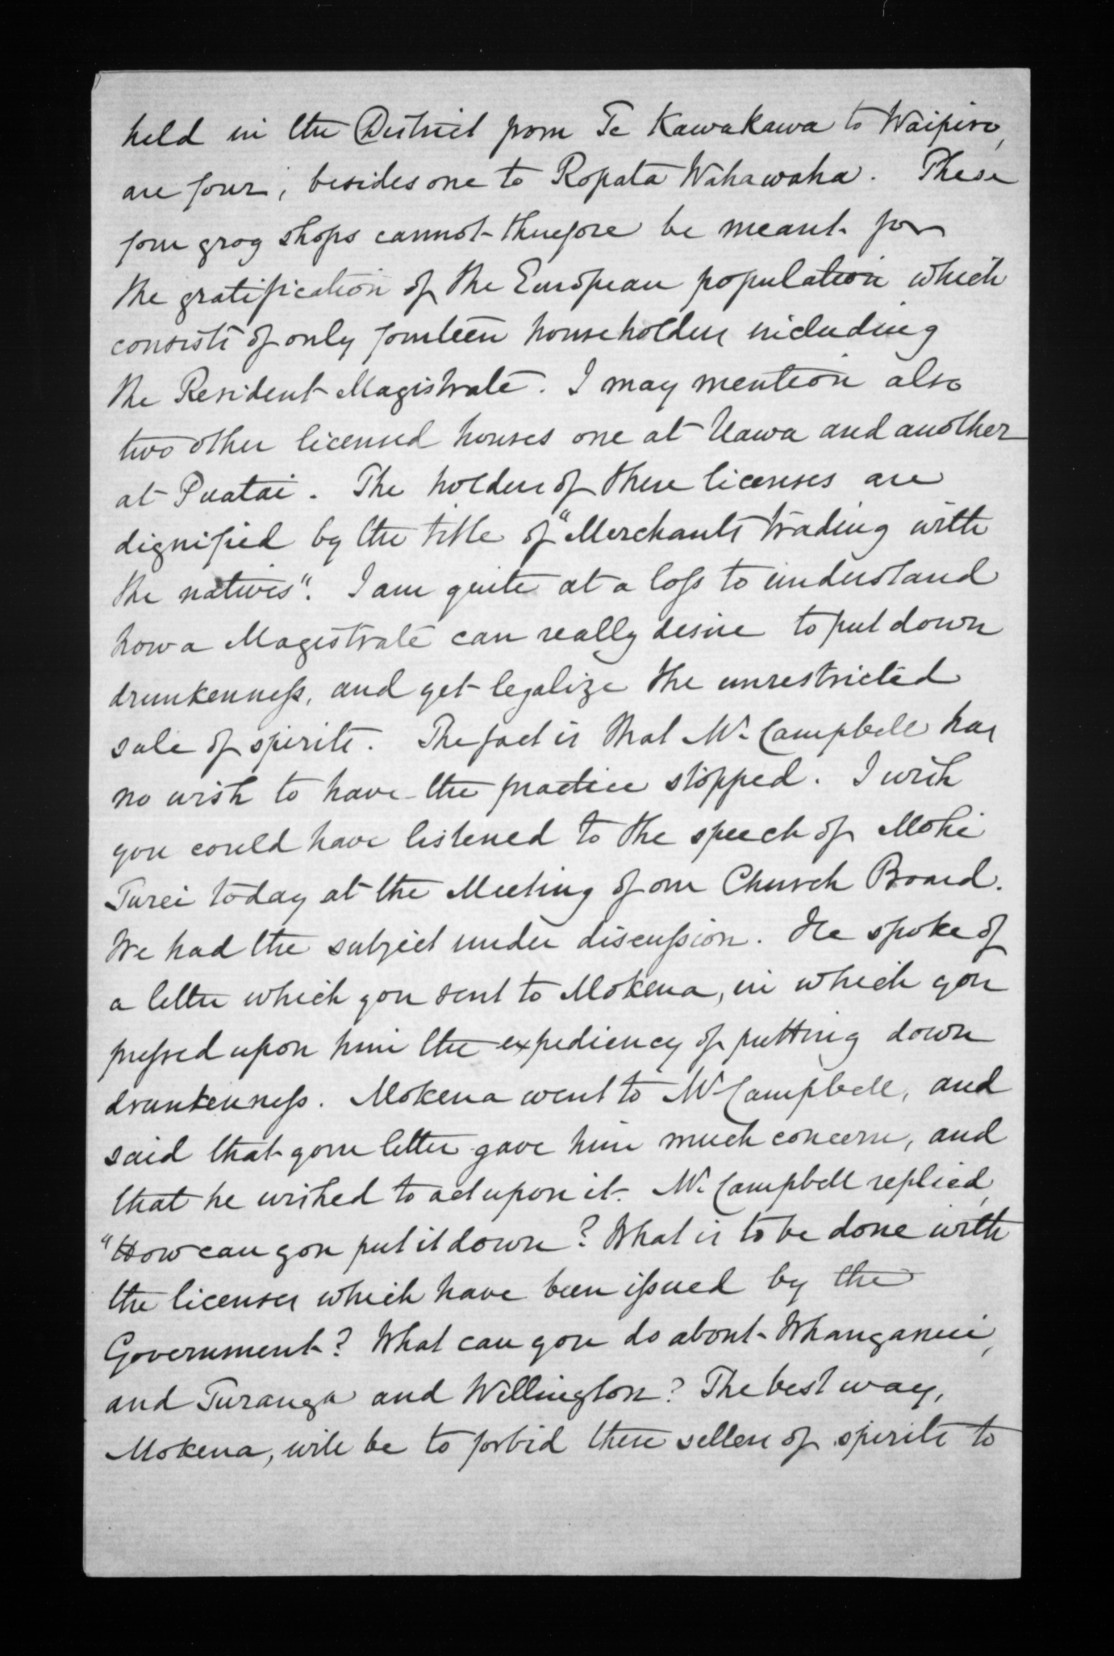 held in the District from Te Kawakawa to Waipiro,
are four, besides one to Ropata Wahawaha. These
four grog shops cannot therefore be meant for
the gratification of the European population which
consists of only fourteen householders including
the Resident Magistrate. I may mention also
two other licensed houses one at Uawa and another
at Puatai. The holders of these licenses are
dignified by the title of "Merchants trading with
the natives". I am quite at a loss to understand
how a Magistrate can really desire to put down
drunkenness, and yet legalize the unrestricted
sale of spirits. The fact is that Mr Campbell has
no wish to have the practice stopped. I wish
you could have listened to the speech of Mohi
Turei today at the Meeting of our Church Board.
We had the subject under discussion. He spoke of
a letter which you sent to Mokena, in which you
pressed upon him the expediency of putting down
drunkenness. Mokena went to Mr Campbell, and
said that your letter gave him much concern, and
that he wished to act upon it. Mr. Campbell replied,
"How can you put it down? What is to be done with
the licenses which have been issued by the
Government? What can you do about Whanganui,
and Turanga and Wellington? The best way,
Mokena, will be to forbid these sellers of spirits to